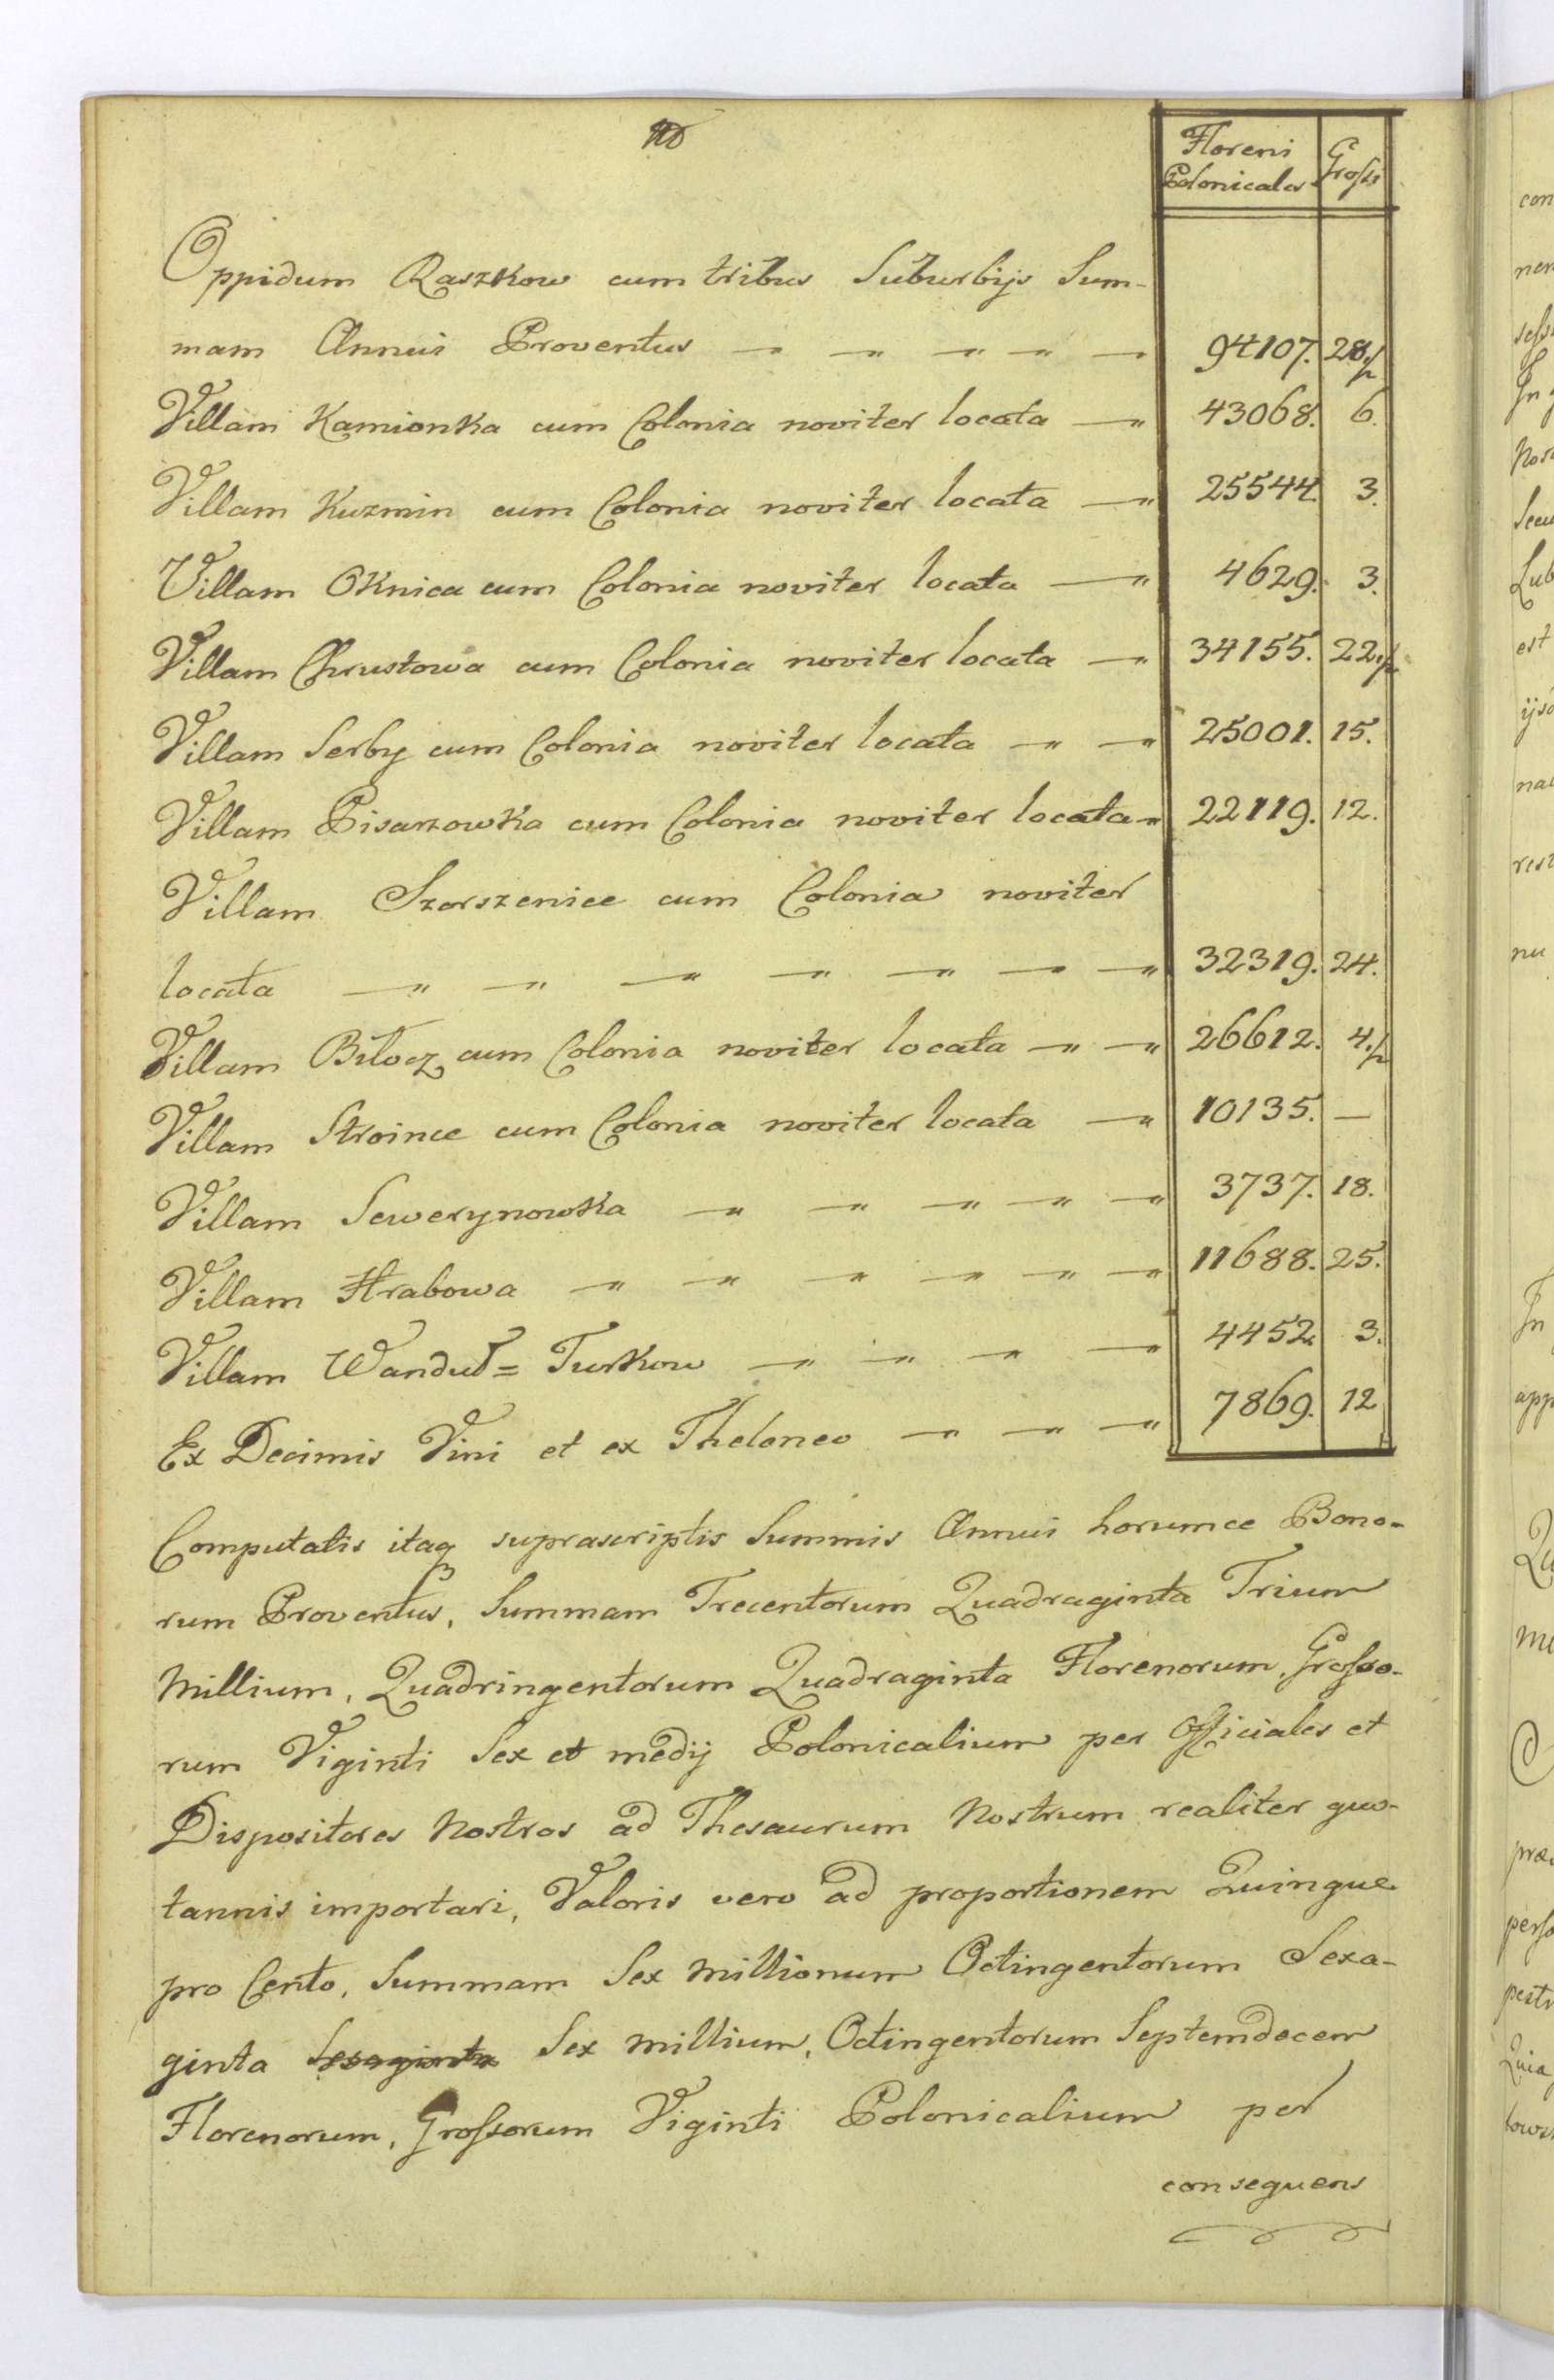 Floreni Grossi
Polonicales
Oppidum Raszkow cum tribus Suburbijs Sum-
mam Annui Proventus 94107. 28½
Villam Kamionka cum Colonia noviter locata 43068. 6.
Villam Kuzmin cum Colonia noviter locata 25544. 3.
Villam Oknica cum Colonia noviter locata 4629. 3.
Villam Chrustowa cum Colonia noviter locata 34155. 22.½
Villam Serby cum Colonia noviter locata 25001. 15.
Villam Pisarzowka cum Colonia noviter locata 22119. 12.
Villam Szorszenice cum Colonia noviter
locata 32319. 24.
Villam Biłocz cum Colonia noviter locata 26612. 4.½
Villam Stroince cum Colonia noviter locata 10135. —
Villam Sewerynowka 3737. 18.
Villam Hrabowa 11688. 25.
Villam Wanduł= Turkow 4452. 3.
Ex Decimis Vini et ex Theloneo 7869. 12
Computatis itaq suprascriptis Summis Annui horumce Bono-
rum Proventus, Summam Trecentorum Quadraginta Trium
Millium, Quadringentorum Quadraginta Florenorum, Grosso-
rum Viginti Sex et medij Polonicalium per Officiales et
Dispositores Nostros ad Thesaurum Nostrum realiter quo-
tannis importari, Valoris vero ad proportionem Quinque
pro Cento, Summam Sex Millionum Octingentorum Sexa-
ginta Sexaginta Sex Millium, Octingentorum Septemdecem
Florenorum, Grossorum Viginti Polonicalium per
consequens